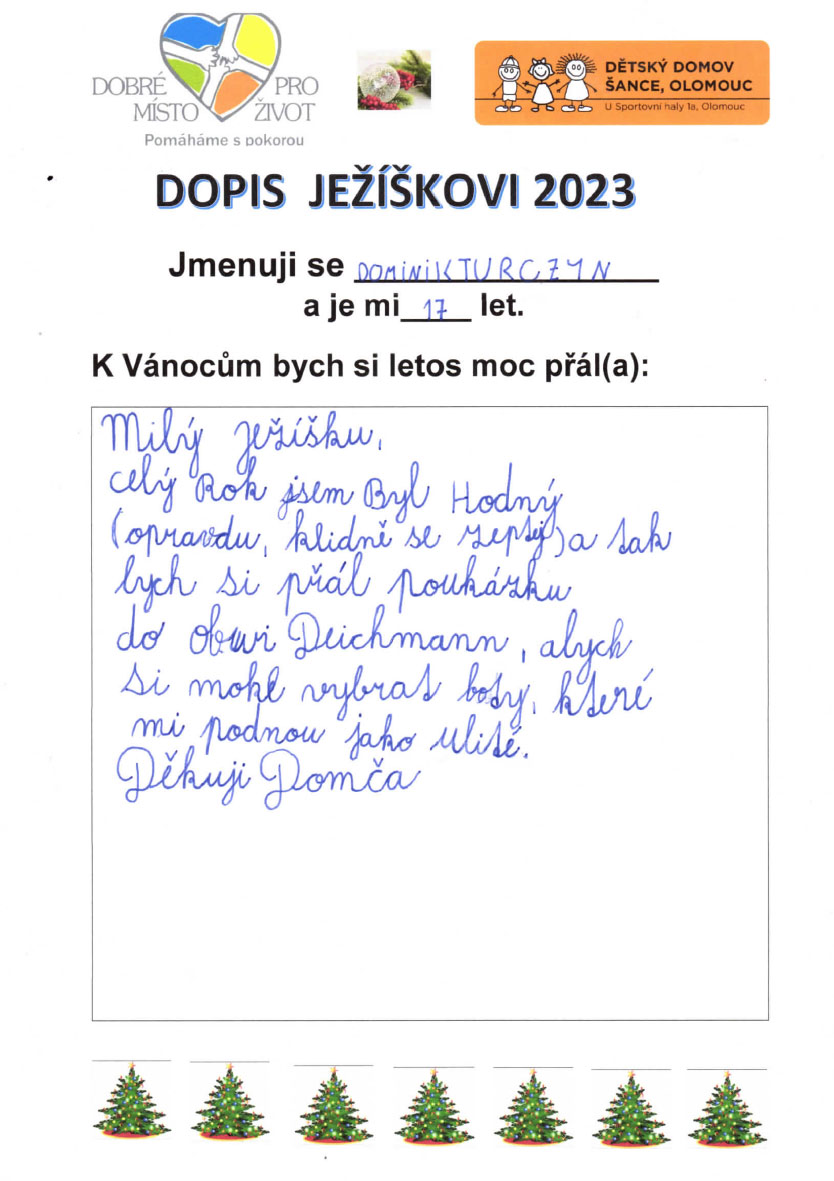 DOBRÉ PRO
MÍSTO ŽIVOT
Pomáháme s pokorou
DĚTSKÝ DOMOV
ŠANCE, OLOMOUC
U Sportovní haly 1a, Olomouc
DOPIS JEŽÍŠKOVI 2023
Jmenuji se DOMINIK TURCZYN
a je mi 17 let.
K Vánocům bych si letos moc přál(a):
Milý Ježíšku,
celý Rok jsem Byl Hodný
(opravdu, klidně se zeptej) a tak
bych si přál poukázku
do obuvi Deichmann, abych
si mohl vybrat boty, které
mi padnou jako ulité.
Děkuji Domča